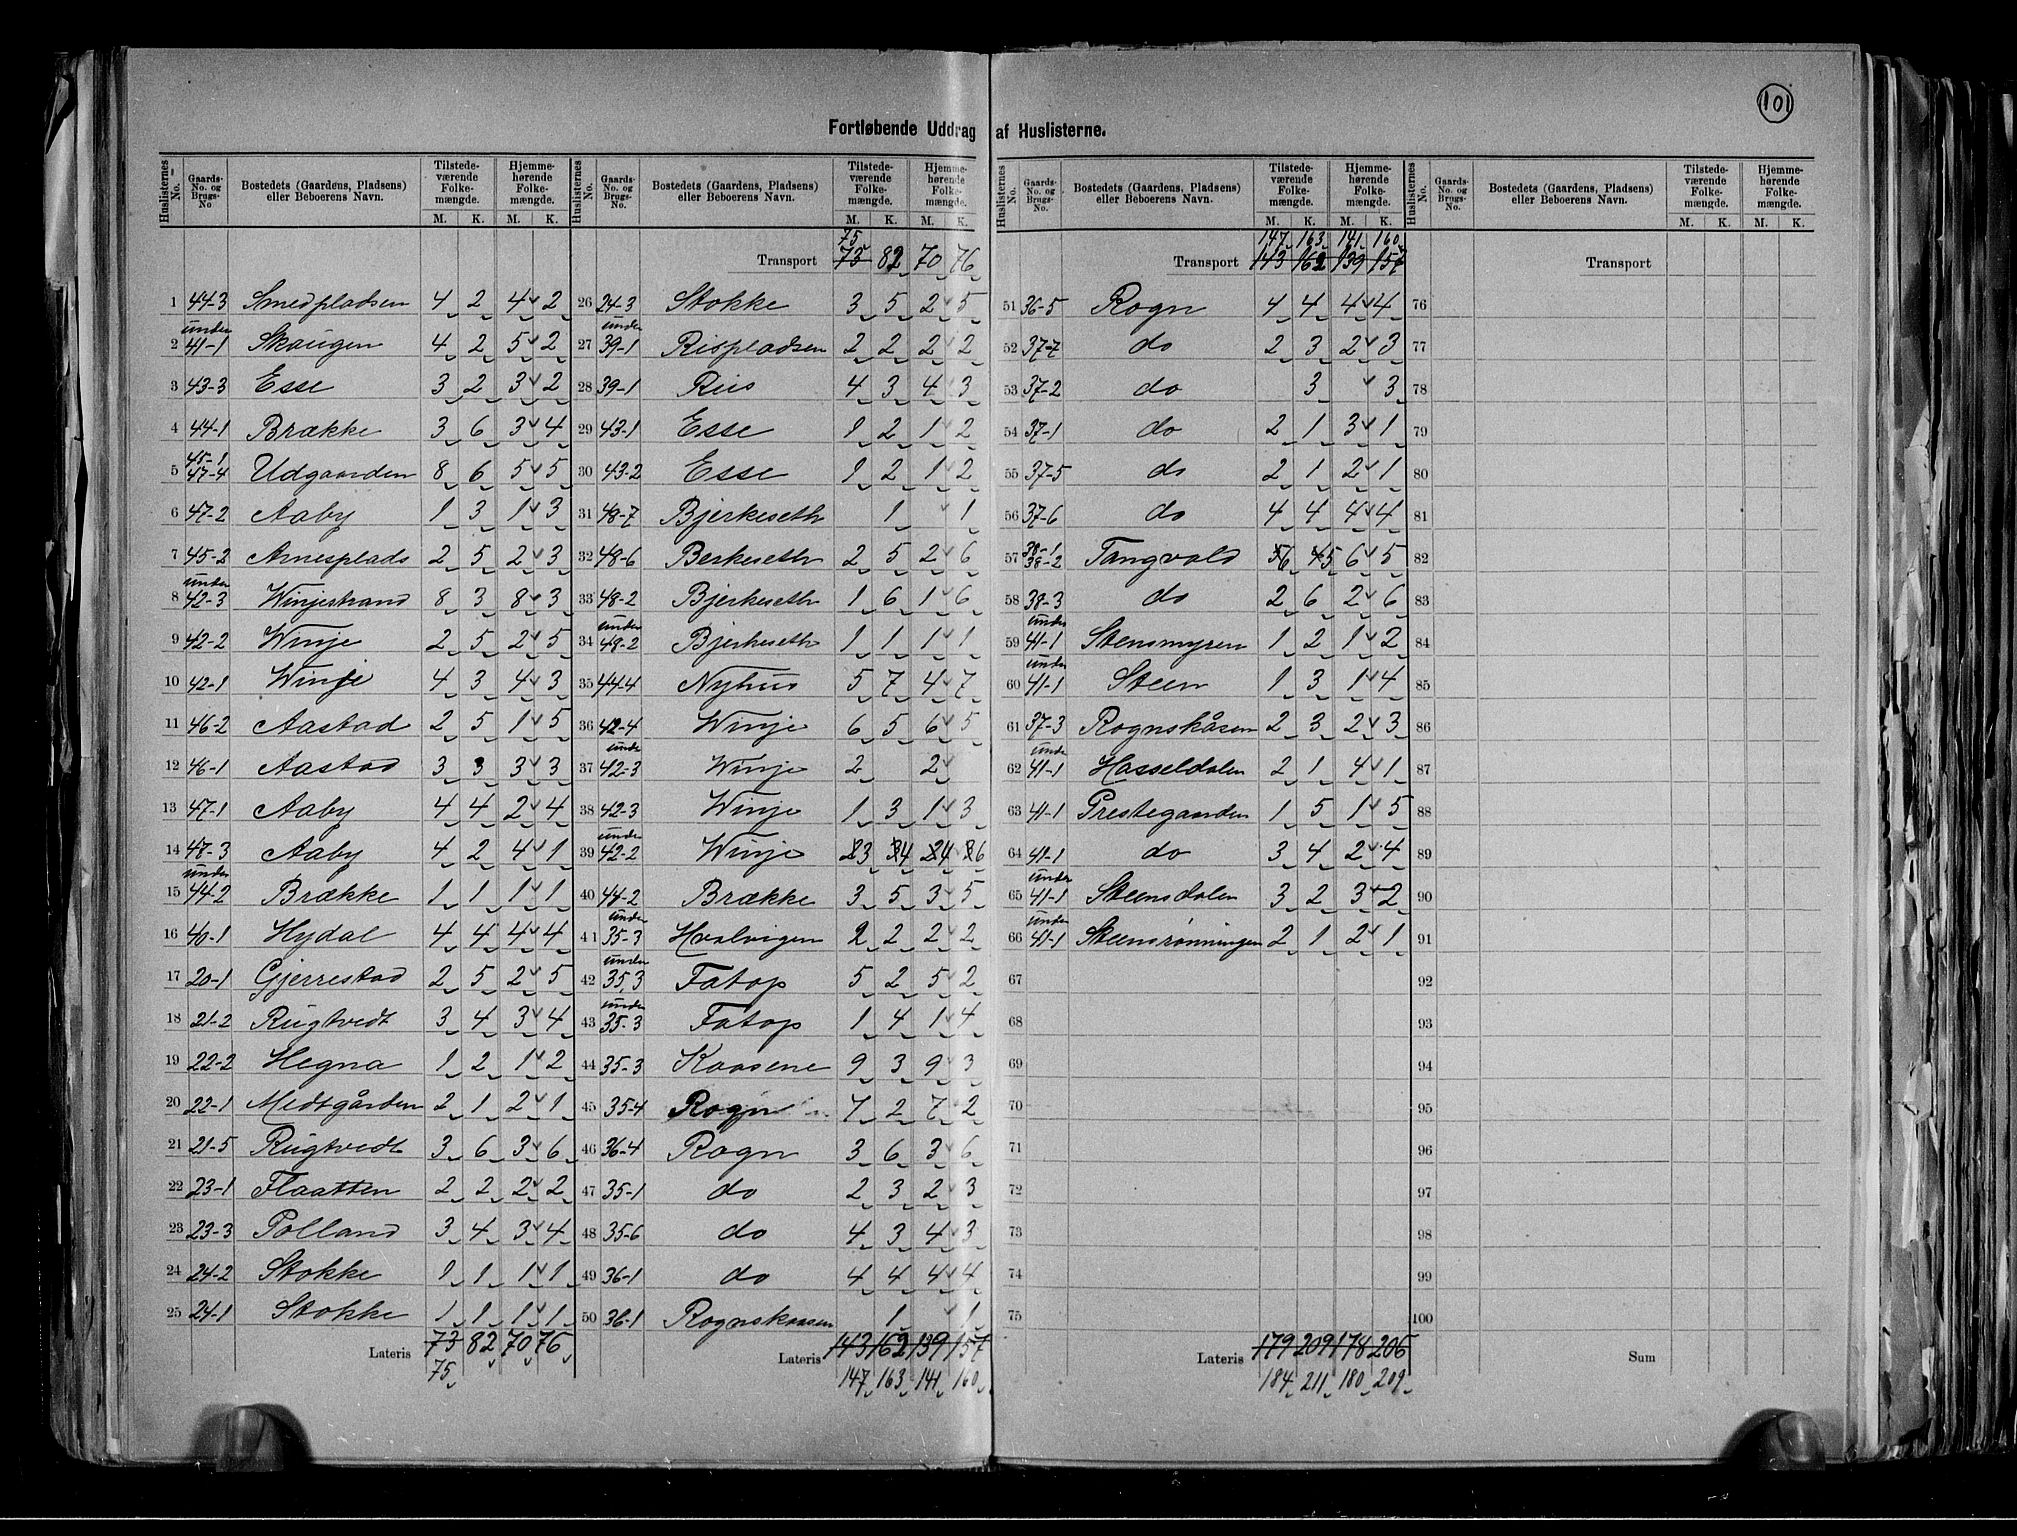 101
Fortløbende Uddrag af Huslisterne.
Huslisternes No. | Gaards-No. og Brugs-No | Bostedets (Gaardens, Pladsens) eller Beboerens Navn. | Tilstedeværende Folkemængde. M. K. | Hjemmehørende Folkemængde. M. K.
1 44-3 Smedpladsen 4 2 4 2
2 under 41-1 Skaugen 4 2 5 2
3 43-3 Esse 3 2 3 2
4 44-1 Brække 3 6 3 4
5 45-1 47-4 Udgaarden 8 6 5 5
6 47-2 Aaby 1 3 1 3
7 45-2 Arnesplads 2 5 2 3
8 under 42-3 Winjestrand 8 3 8 3
9 42-2 Winje 2 5 2 5
10 42-1 Winje 4 3 4 3
11 46-2 Aastad 2 5 1 5
12 46-1 Aastad 3 3 3 3
13 47-1 Aaby 4 4 2 4
14 47-3 Aaby 4 2 4 1
15 under 44-2 Brække 1 1 1 1
16 40-1 Hydal 4 4 4 4
17 20-1 Gjerrestad 2 5 2 5
18 21-2 Rugtvedt 3 4 3 4
19 22-2 Hegna 1 2 1 2
20 22-1 Medtgården 2 1 2 1
21 21-5 Rugtvedt 3 6 3 6
22 23-1 Flaatten 2 2 2 2
23 23-3 Polland 3 4 3 4
24 24-2 Stokke 1 1 1 1
25 24-1 Stokke 1 1 1 1
Lateris 73 82 70 76
75
Huslisternes No. | Gaards-No. og Brugs-No. | Bostedets (Gaardens, Pladsens) eller Beboerens Navn. | Tilstedeværende Folkemængde. M. K. | Hjemmehørende Folkemængde. M. K.
75
Transport 73 82 70 76
26 24-3 Stokke 3 5 2 5
27 under 39-1 Rispladsen 2 2 2 2
28 39-1 Riis 4 3 4 3
29 43-1 Esse 1 2 1 2
30 43-2 Esse 1 2 1 2
31 48-7 Bjerkeseth 1 1
32 48-6 Berkeseth 2 5 2 6
33 48-2 Bjerkeseth 1 6 1 6
34 under 48-2 Bjerkeseth 1 1 1 1
35 44-4 Nyhus 5 7 4 7
36 42-4 Winje 6 5 6 5
37 under 42-3 Winje 2 2
38 42-3 Winje 1 3 1 3
39 under 42-2 Winje 3 4 4 6
40 44-2 Brække 3 5 3 5
41 under 35-3 Hvalvigen 2 2 2 2
42 under 35,3 Fatop 5 2 5 2
43 under 35-3 Fatop 1 4 1 4
44 35-3 Kaasene 9 3 9 3
45 35-4 Rogn 7 2 7 2
46 36-4 Rogn 3 6 3 6
47 35-1 do 2 3 2 3
48 35-6 do 4 3 4 3
49 36-1 do 4 4 4 4
50 36-1 Rognskaasen 1 1
Lateris 143 162 139 157
147 163 141 160
Huslisternes No. | Gaards-No. og Brugs-No. | Bostedets (Gaardens, Pladsens) eller Beboerens Navn. | Tilstedeværende Folkemængde. M. K. | Hjemmehørende Folkemængde. M. K.
147 163 141 160
Transport 143 162 139 157
51 36-5 Rogn 4 4 4 4
52 37-7 do 2 3 2 3
53 37-2 do 3 3
54 37-1 do 2 1 3 1
55 37-5 do 2 1 2 1
56 37-6 do 4 4 4 4
57 38-1 38-2 Tangvald 6 5 6 5
58 38-3 do 2 6 2 6
59 under 41-1 Stensmyren 1 2 1 2
60 under 41-1 Steen 1 3 1 4
61 37-3 Rognskåsen 2 3 2 3
62 under 41-1 Hasseldalen 2 1 4 1
63 41-1 Prestegaarden 1 5 1 5
64 41-1 do 3 4 2 4
65 under 41-1 Steensdalen 3 2 3 2
66 under 41-1 Steensrønningen 2 1 2 1
67
68
69
70
71
72
73
74
75
Lateris 179 209 178 206
184 211 180 209
Huslisternes No. | Gaards-No. og Brugs-No. | Bostedets (Gaardens, Pladsens) eller Beboerens Navn. | Tilstedeværende Folkemængde. M. K. | Hjemmehørende Folkemængde. M. K.
Transport
76
77
78
79
80
81
82
83
84
85
86
87
88
89
90
91
92
93
94
95
96
97
98
99
100
Sum